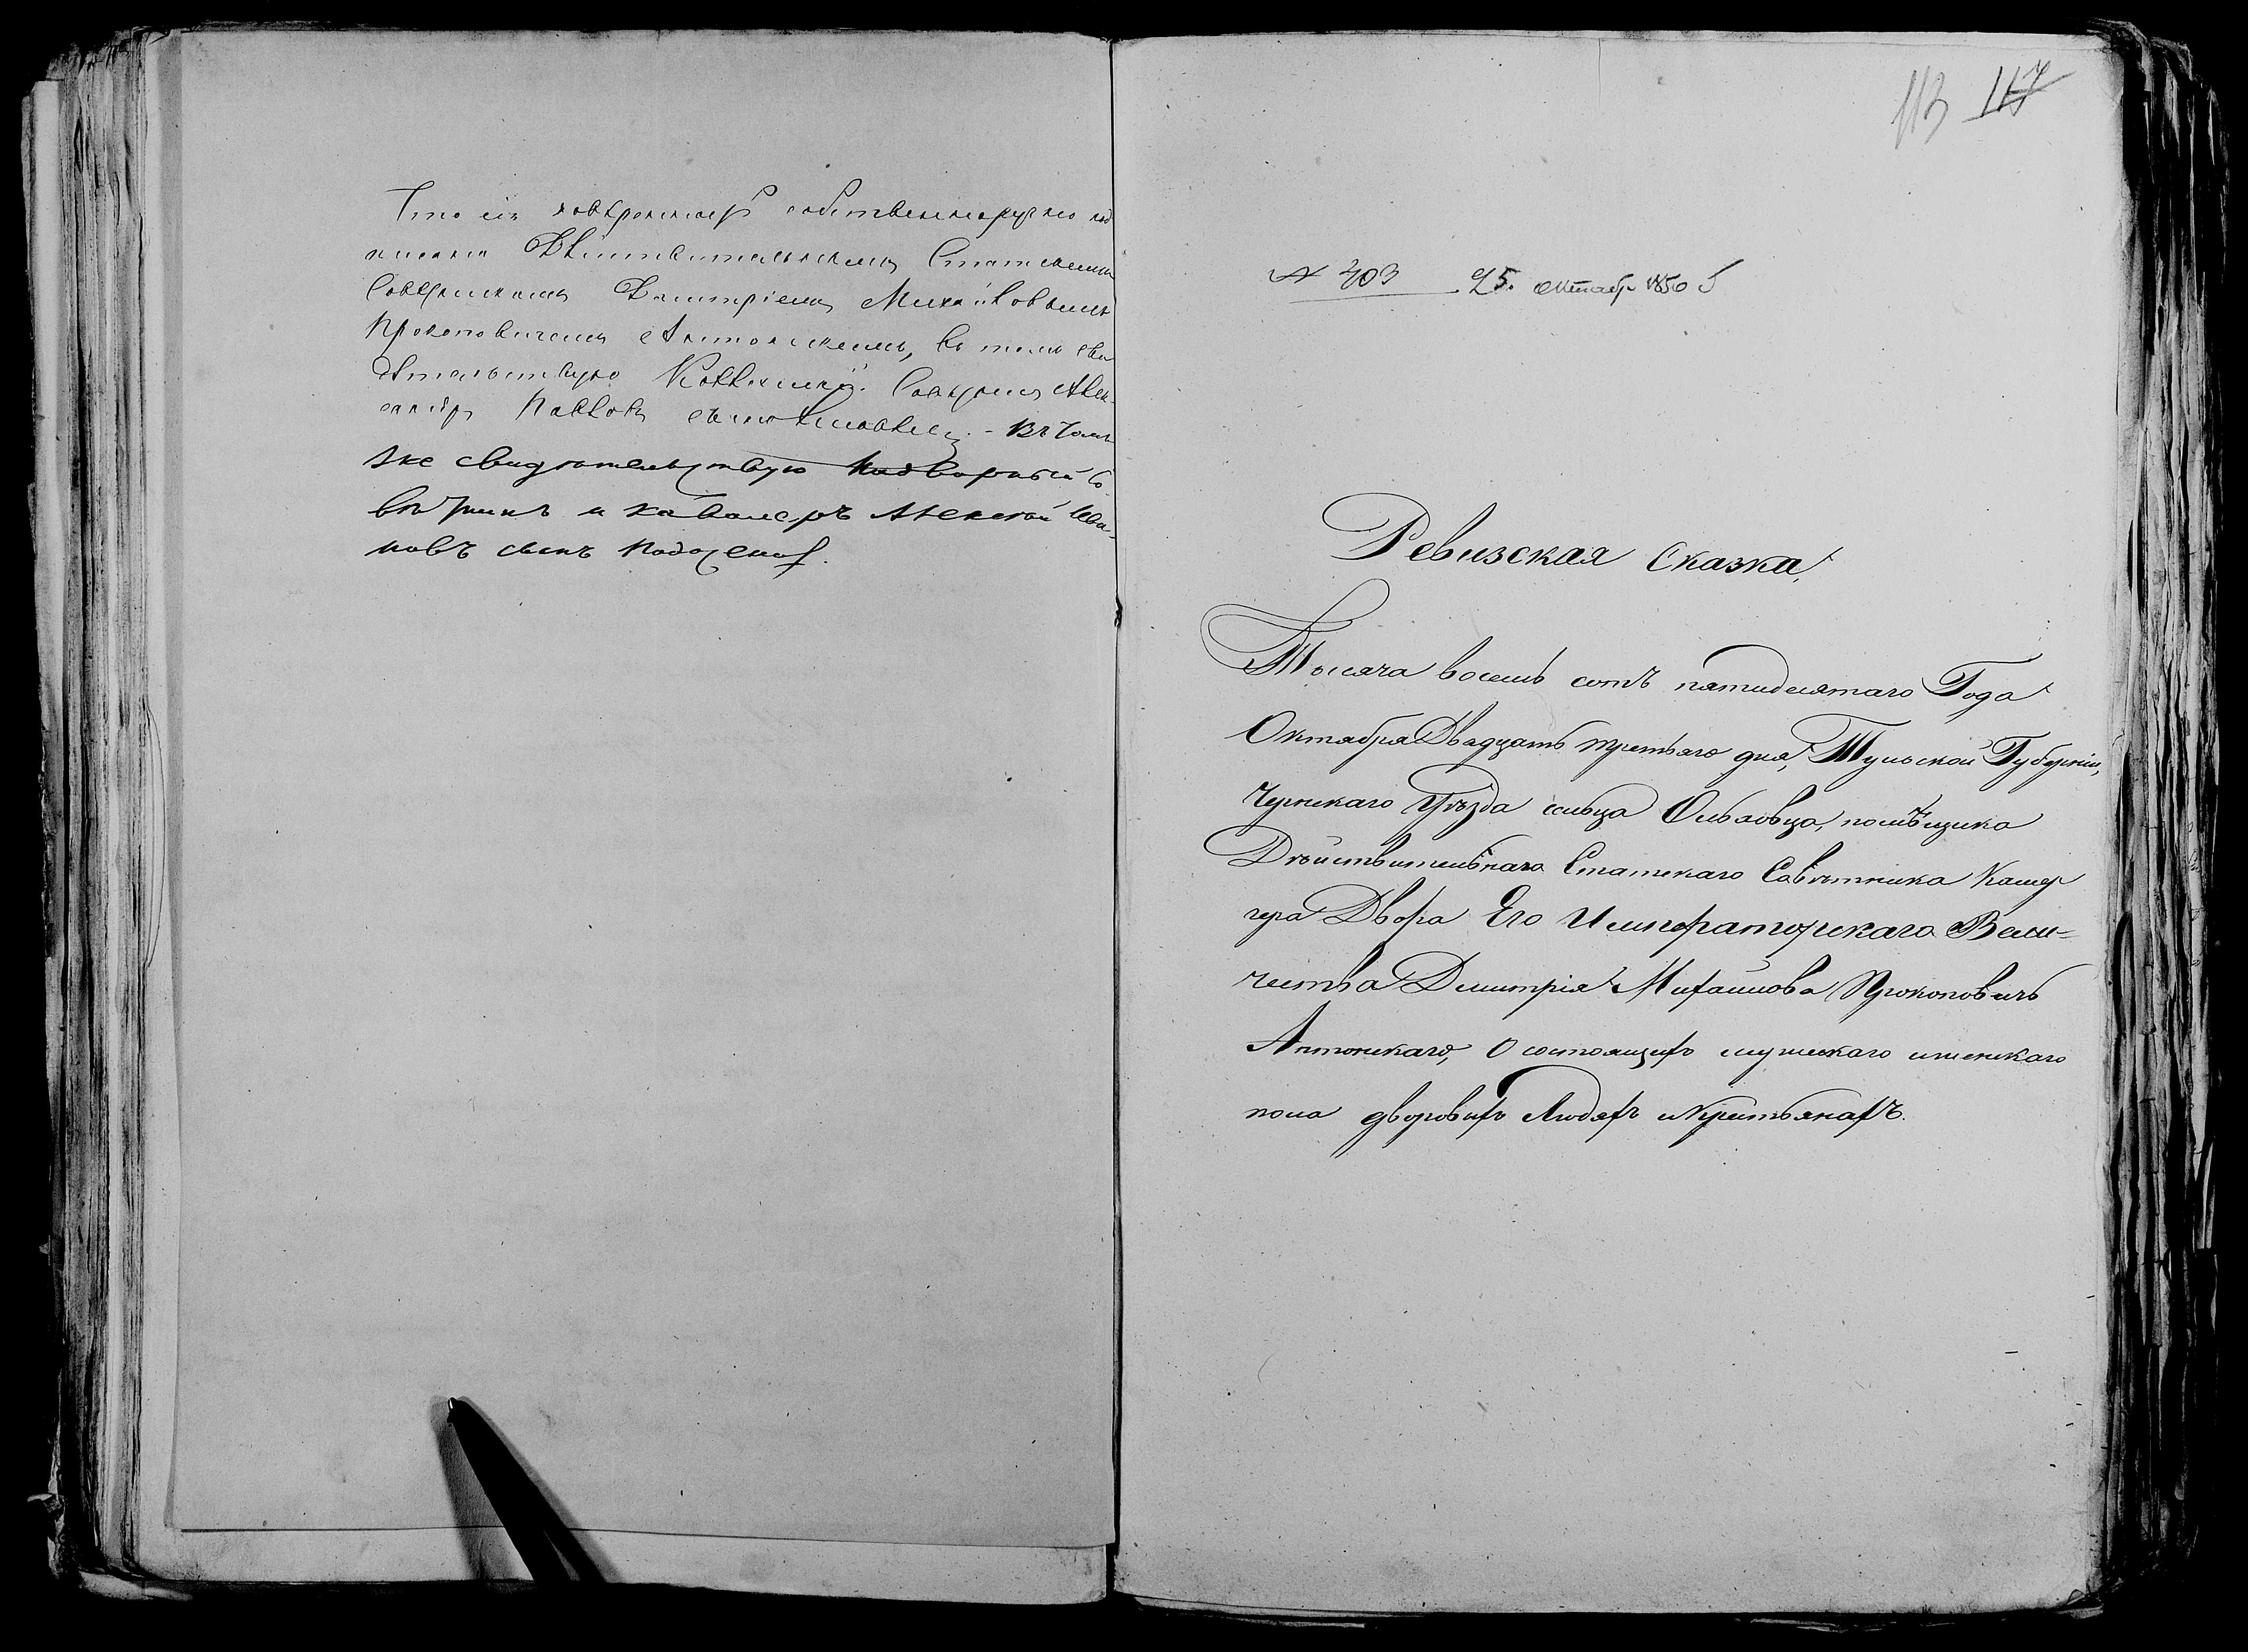 Что сія довѣренность собственноручно под
писана Дѣйствительнымъ Статскимъ
Совѣтникомъ Дмитріемъ Михайловымъ
Прокоповичемъ Антонскимъ, въ томъ сви
дѣтельствую Коллежскій Совѣтникъ Алек-
сандръ Павловъ сынъ - Въ томъ
же свидѣтельствую Надворный Со
вѣтникъ и кавалеръ Алексѣй Ива-
новъ сынъ
113 117
№ 403 25. октяб. 1850
Ревизская Сказка,
Тысяча восемь сотъ пятидесятаго Года
Октября Двадцать третьяго дня, Тульской Губерніи,
Чернскаго Уѣзда сельца помѣщика
Дѣйствительнаго Статскаго Совѣтника Камер
гера Двора Его Императорскаго Вели-
чества Дмитрія Михайлова Прокоповичь
Антонскаго, О состоящихъ мужескаго и женскаго
пола дворовыхъ Людяхъ и Крестьянахъ.